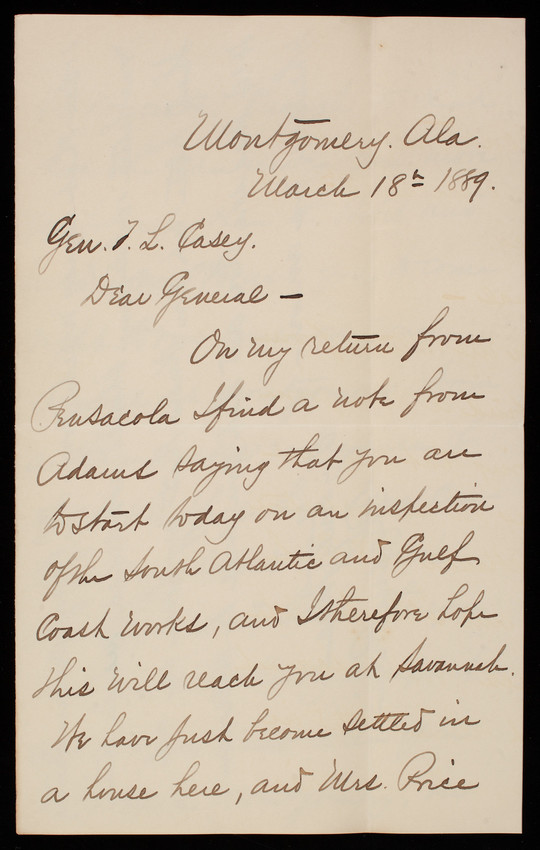 Montgomery. Ala.
March 18th 1889.
Gen. T. L. Casey.
Dear General —
On my return from
Pensacola I find a note from
Adams saying that you are
to start today on an inspection
of the South Atlantic and Gulf
Coast works, and I therefore hope
this will reach you at Savannah.
We have just become settled in
a house here, and Mrs. Price